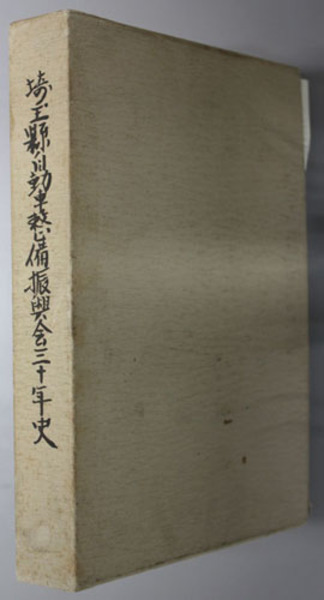 埼玉縣自動車整備振興会三十年史